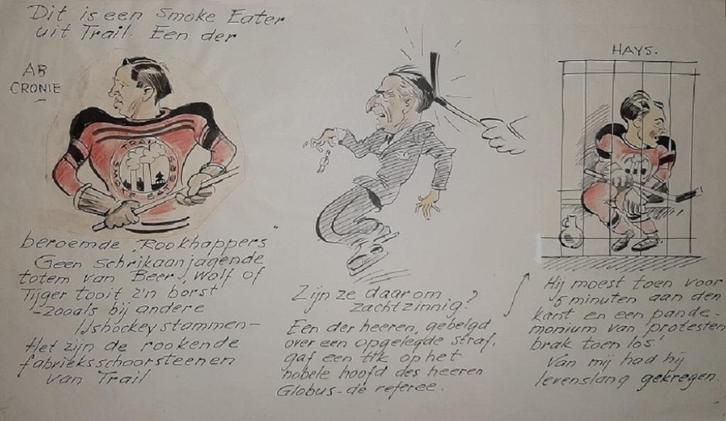 Dit is een Smoke Eater
uit Trail. Een der
AB
CRONIE
beroemde "Rookhappers"
Geen schrikaanjagende
totem van Beer, Wolf of
Tijger tooit z'n borst
-zooals bij andere
IJshockeystammen-
Het zijn de rookende
fabrieksschoorsteenen
van Trail
Zijn ze daarom
zachtzinnig?
Een der heeren, gebelgd
over een opgelegde straf,
gaf een tik op het
nobele hoofd des heeren
Globus-de referee.
HAYS.
Hij moest toen voor
5 minuten aan den
kant en een pande-
monium van 'protesten
brak toen los'
Van mij had hij
levenslang gekregen.